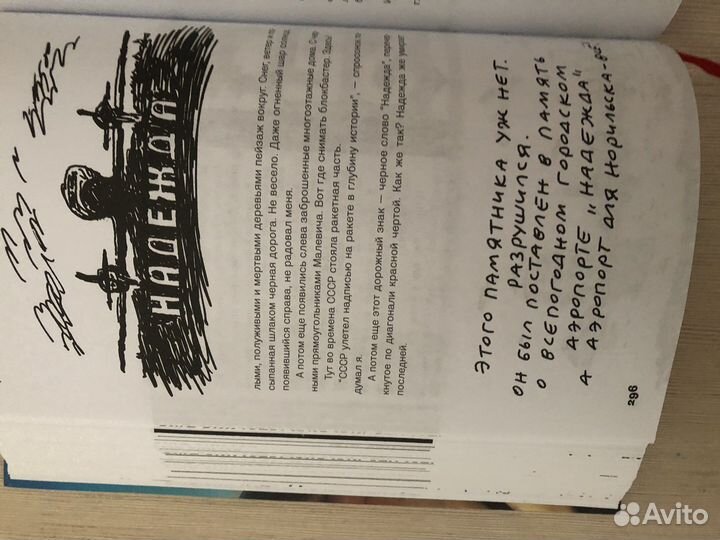 НАДЕЖДА
лыми, полуживыми и мертвыми деревьями пейзаж вокруг. Снег, ветер и
сыпанная шлаком черная дорога. Не весело. Даже огненный шар солнц
появившийся справа, не радовал меня.
А потом еще появились слева заброшенные многоэтажные дома. С
ными прямоугольниками Малевича. Вот где снимать блокбастер.
Тут во времена СССР стояла ракетная часть.
"СССР улетел надписью на ракете в глубину истории", – спросонок п
думал я.
А потом еще этот дорожный знак – черное слово "Надежда",
кнутое по диагонали красной чертой. Как же так? Надежда же умирает
последней.
ЭТОГО ПАМЯТНИКА УЖЕ НЕТ.
РАЗРУШИЛСЯ.
ОН БЫЛ ПОСТАВЛЕН В ПАМЯТЬ
О ВСЕПОГОДНОМ ГОРОДСКОМ
АЭРОПОРТЕ „НАДЕЖДА"
А АЭРОПОРТ ДЛЯ НОРИЛЬСКА-
296
Avito